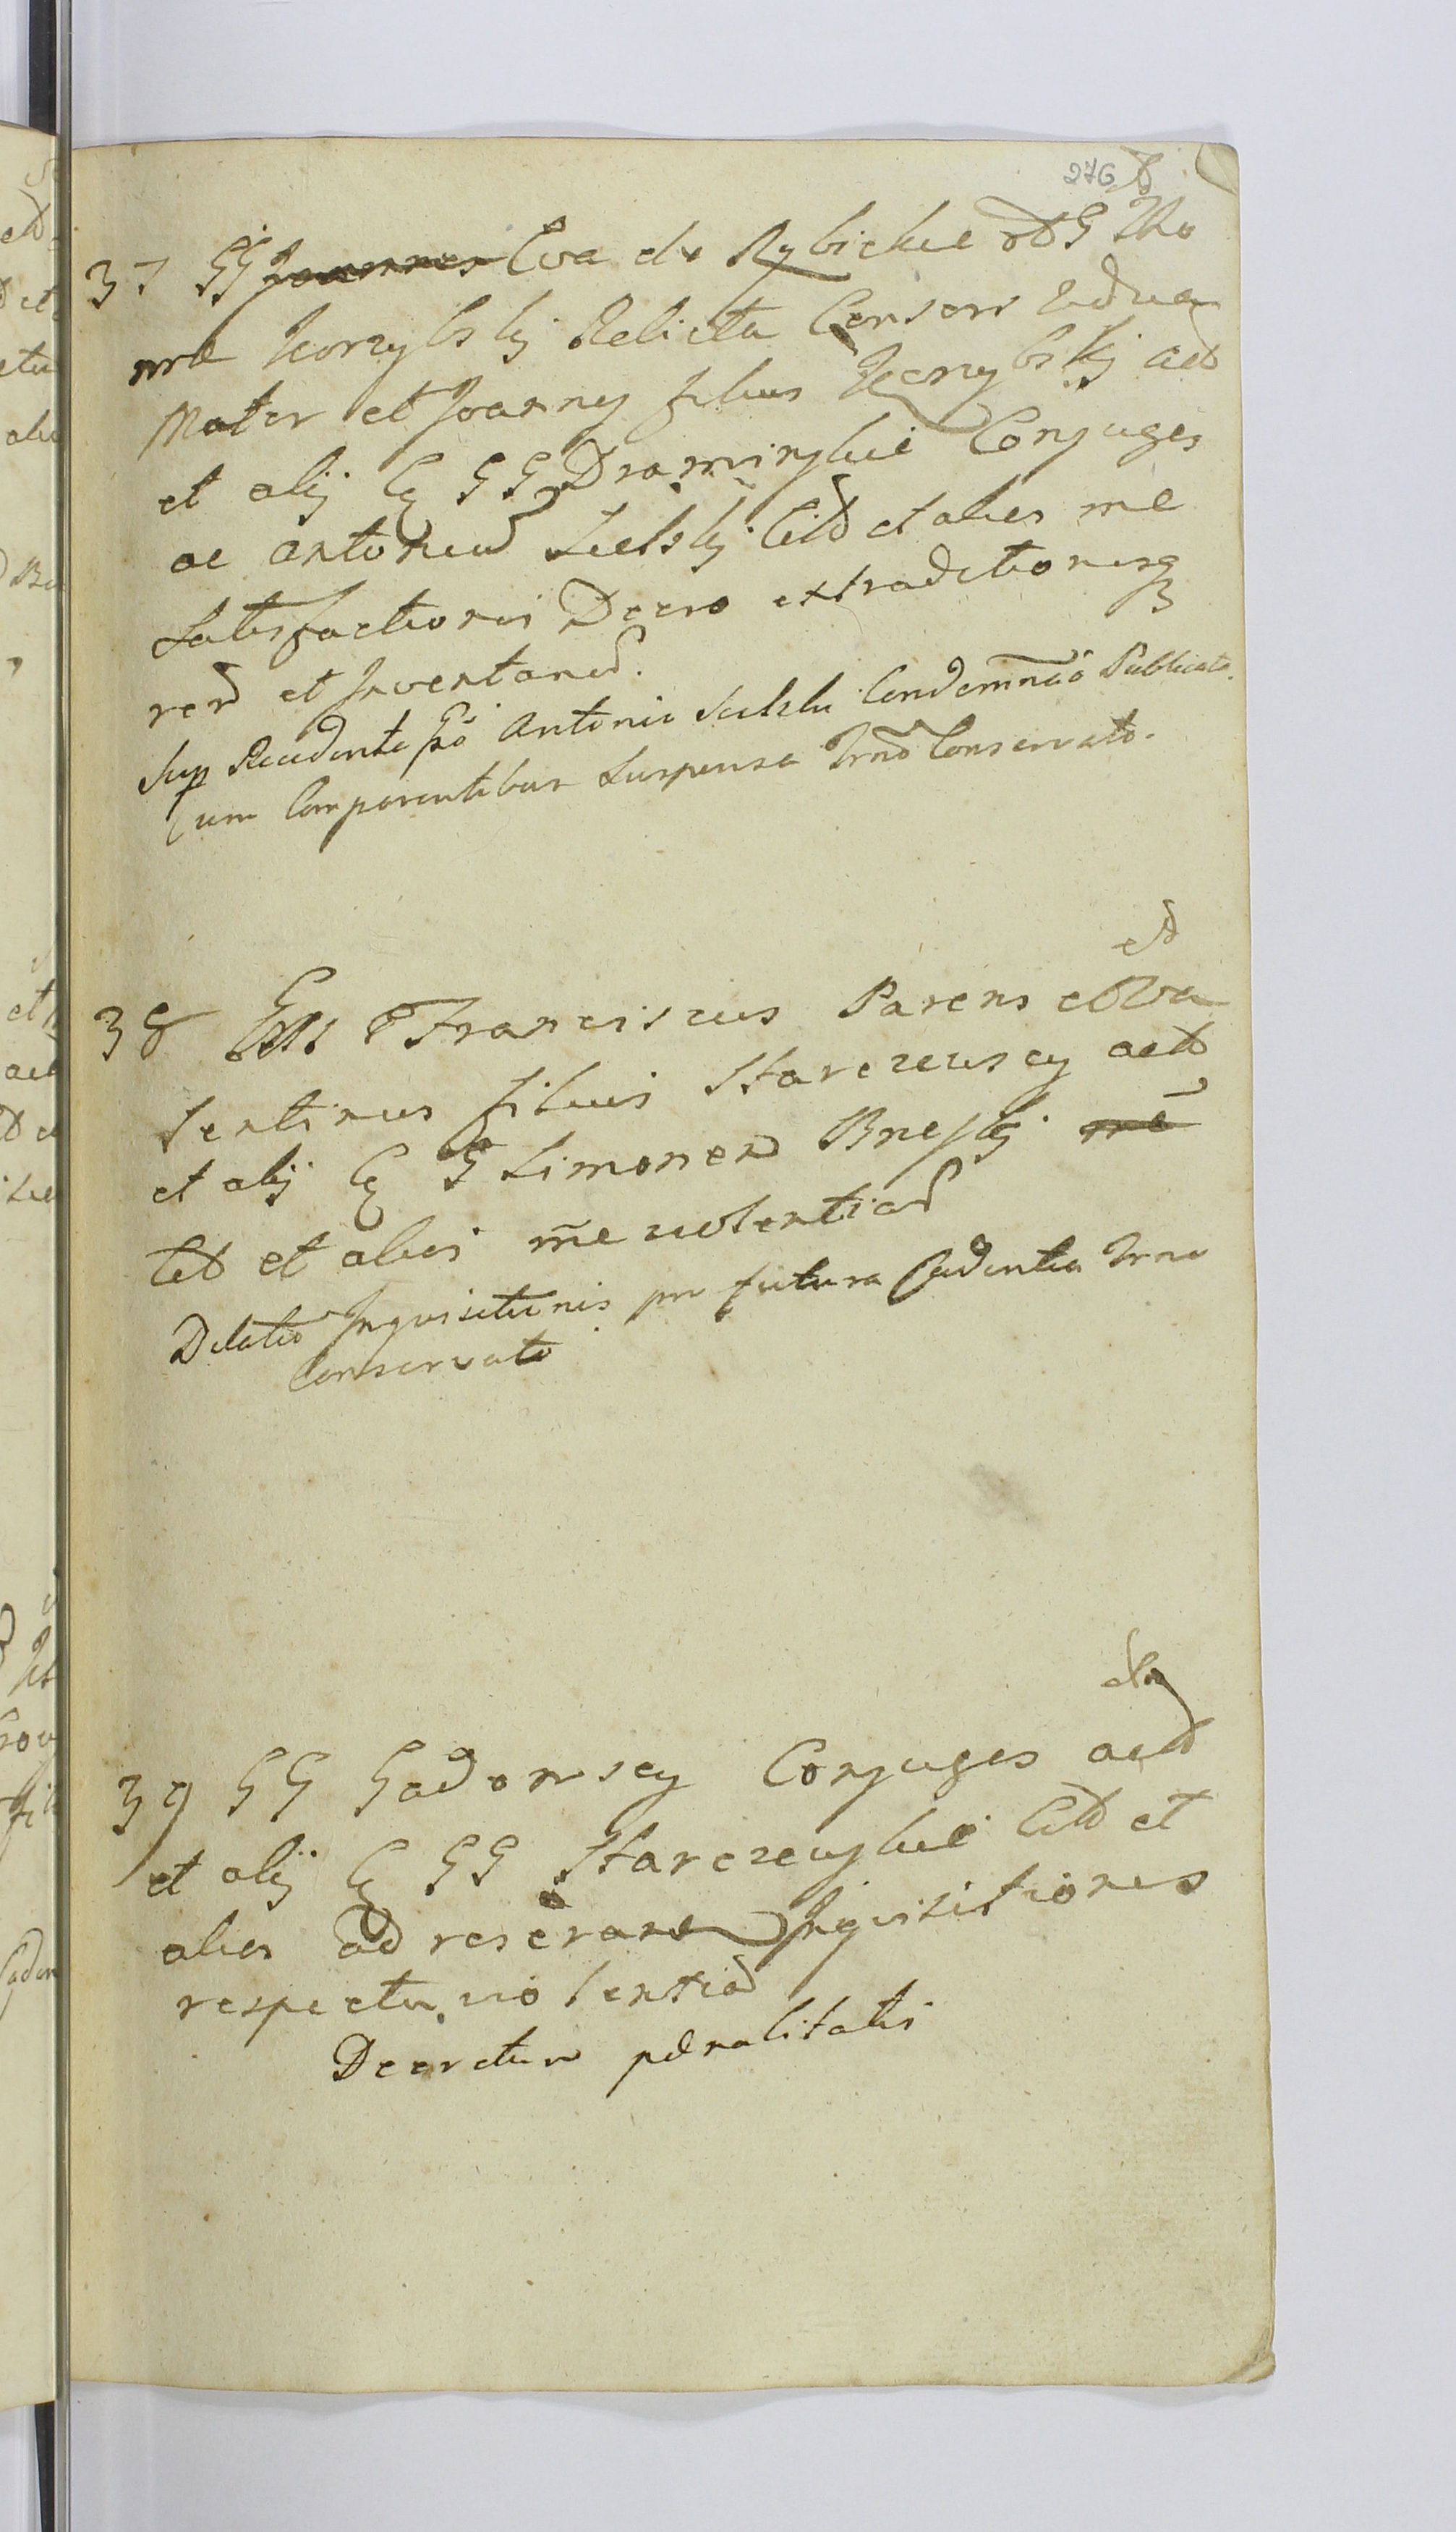 276
37 GG Joannes Eva de Rybickie G Tho
mæ Korzybskij Relicta Consors vidua
Mater et Joannes filius Korzybskij act
et alij Cq GG Dramińskie Conjuges
ac Antonium Sielskij Citt et alios rne
Satisfactionis Decro extraditionisq
rerum et Inventarium.
Sup Recedente Gso Antonio Sielski Condemnão Publicata.
Cum Comparentibus Suspensa Trno Conservato.
38 Franciscus Parens et Va
lentinus filius Starczewscy act
et alij Cq G Simonem Breskij
Citt et alios rne violentiarum
Dilatio Inquisitionis pro futura Cadentia Trno
Conservato
39 GG Gadomscy Conjuges act
et alij Cq GG Starczewskie Citt et
alios ad reserand Inquisitiones
respectu violentiarum
Decretum pænalitatis